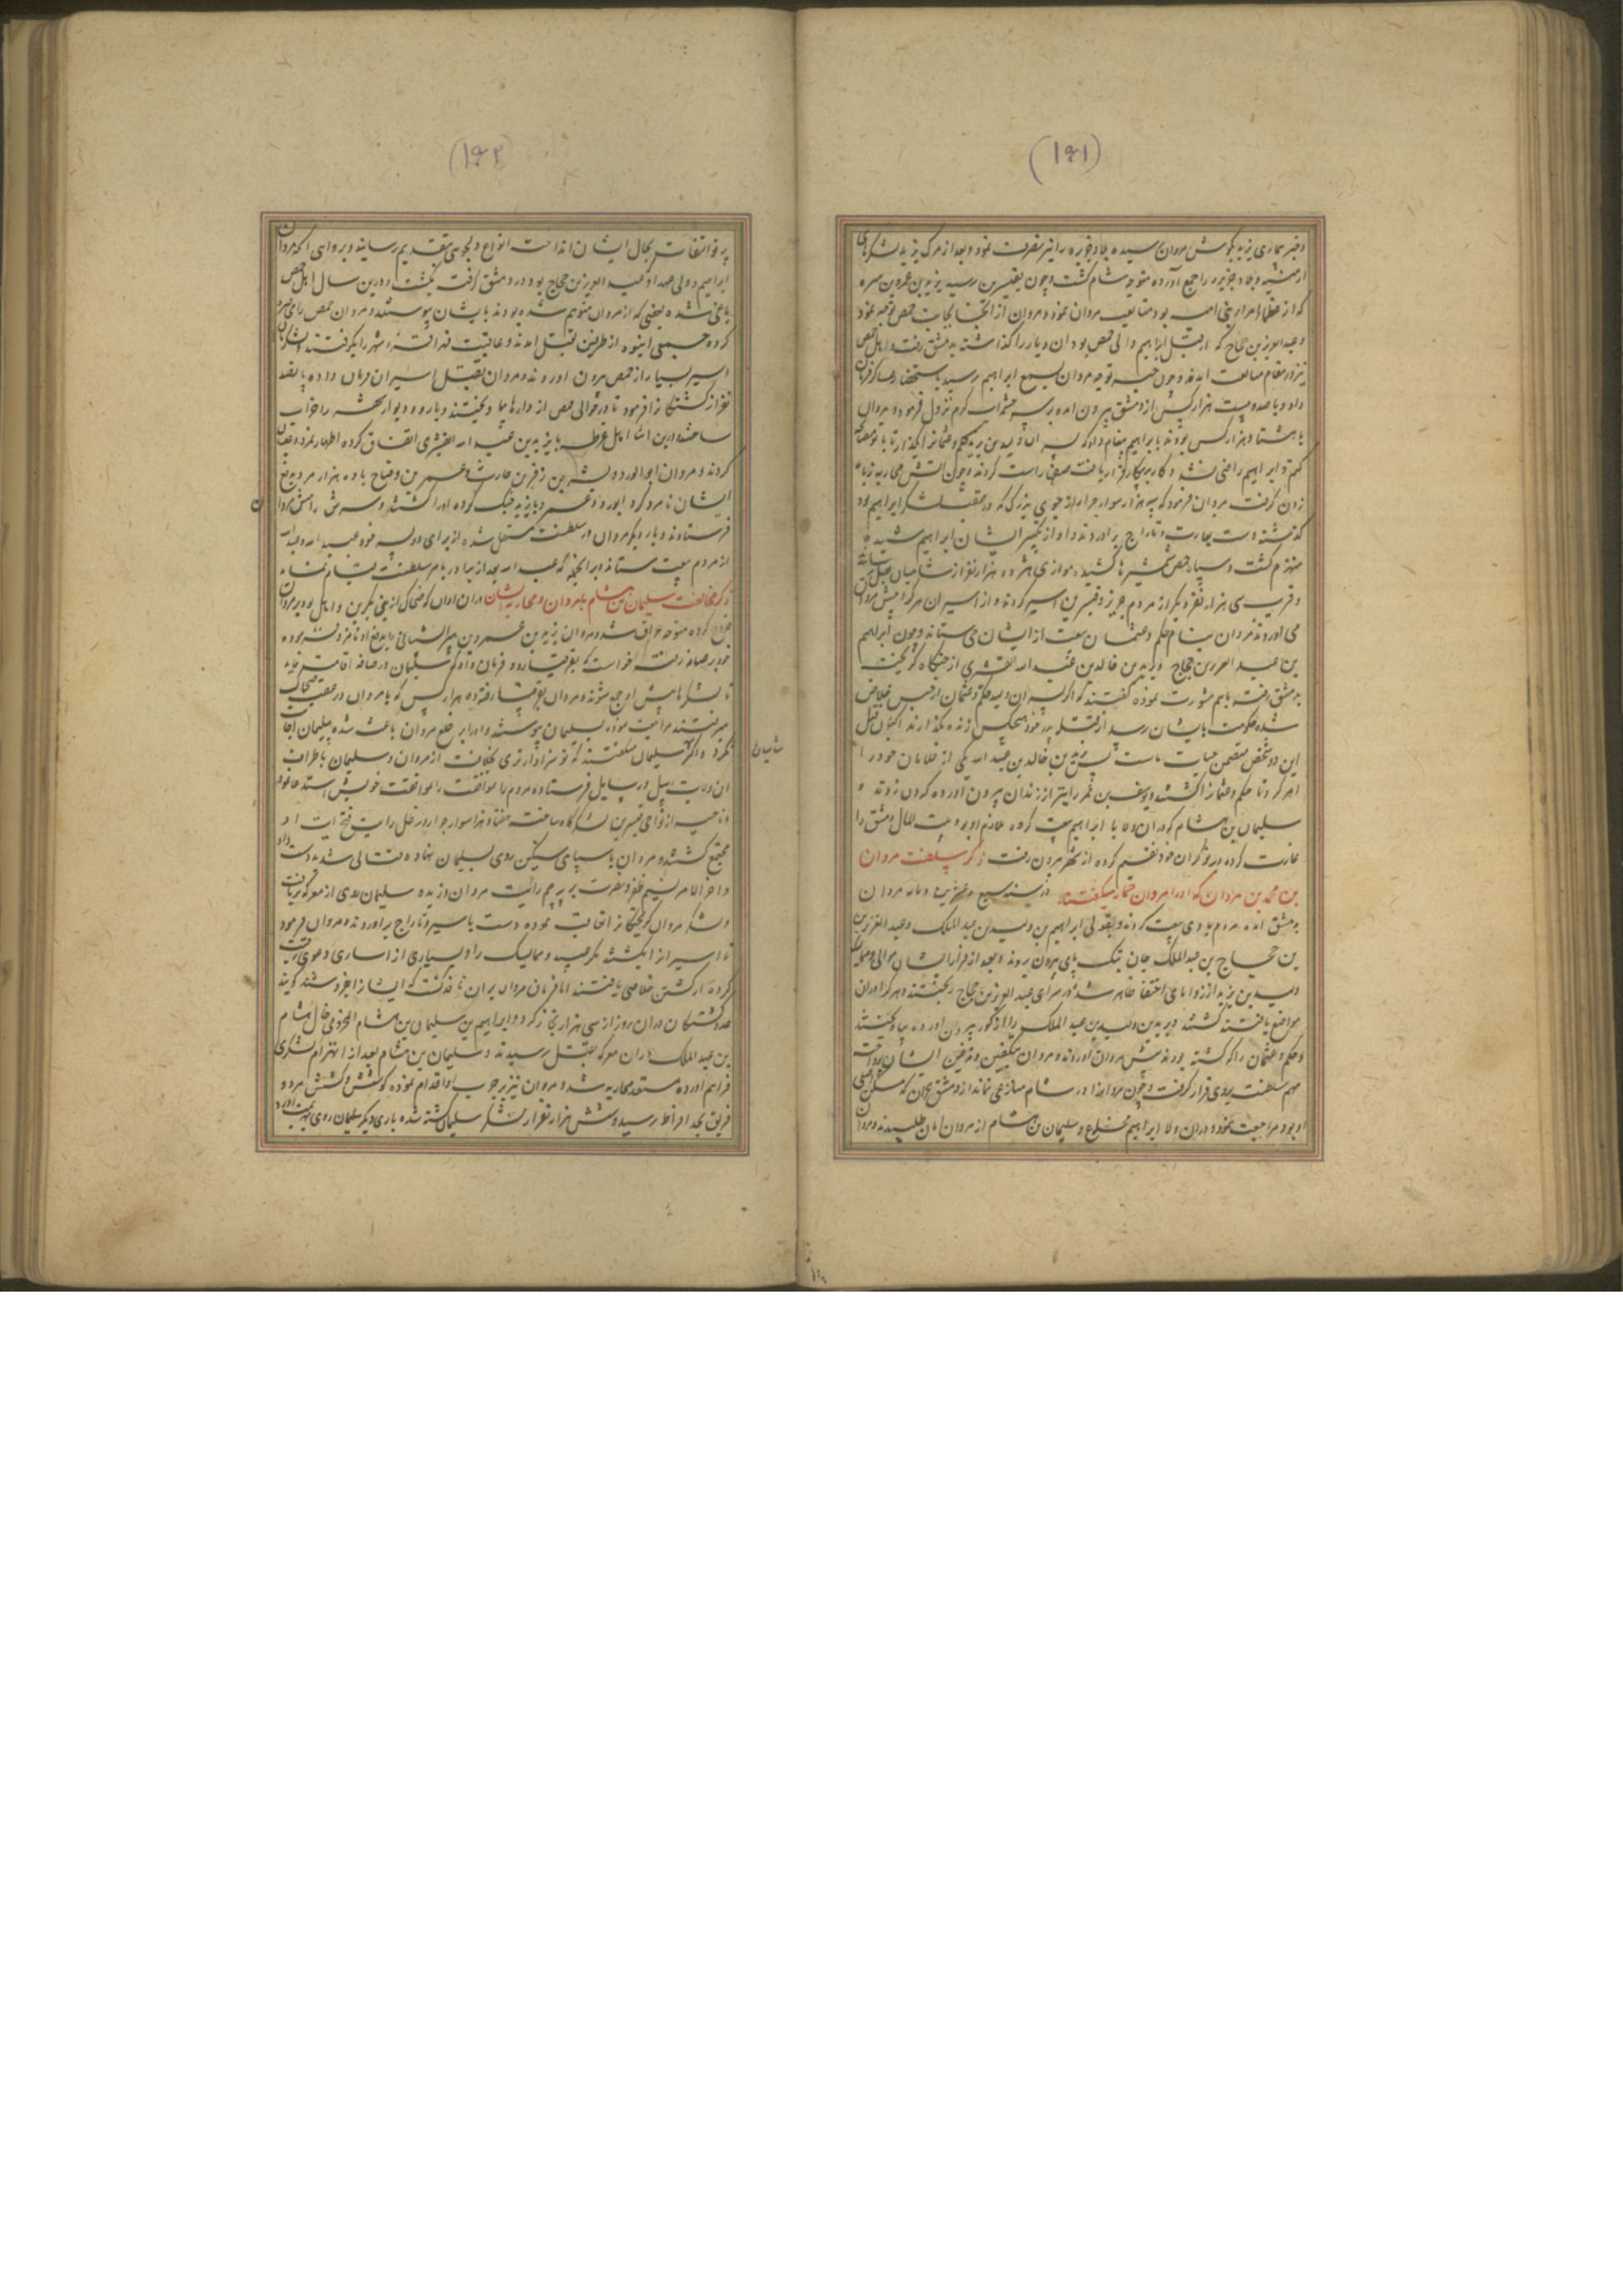 (۱۶۱)
و خبر بیماری یزید بگوش مروان رسیده بلاد جزیره را نیز تصرف نمود و بعد از مرگ یزید لشکرهای
ارمنیه و بلاد جزیره را جمع آورده متوجه شام گشت و چون بقنسرین رسید یزید بن عمرو بن هبیره
که از عظماء امراء بنی امیه بود متابعت مروان نمود و مروان از آنجا بجانب حمص توجه نمود
و عبد العزیز بن حجاج که از قبل ابراهیم والی حمص بود آن دیار را گذاشته بدمشق رفت و اهل حمص
نیز در مقام متابعت آمدند و چون خبر توجه مروان بسمع ابراهیم رسید باستحضار عساکر فرمان
داد و با صد و بیست هزار کس از دمشق بیرون آمده بر سر چشمه آب گرم نزول فرمود و مروان
با هشتاد هزار کس بودند بابراهیم پیغام داد که پسران ولید بن یزید حکم و عثمان را بگذار تا با تو مصالحه
کنم و ابراهیم راضی نشد و کار به پیکار قرار یافت صفها راست کردند و چون آتش محاربه زبانه
زدن گرفت مروان فرمود که سه هزار سوار جرار از جوی بزرگی که در عقب لشکر ابراهیم بود
گذشته دست بغارت و تاراج برآوردند و آواز تکبیر ایشان ابراهیم شنیده
منهزم گشت و سپاه حمص شمشیرها کشیده موازی هژده هزار نفر از شامیان بقتل رساندند
و قریب سی هزار نفر دیگر از مردم جزیره و قنسرین اسیر کردند و از اسیران هر کرا پیش مروان
می آوردند مروان بنام حکم و عثمان بیعت از ایشان می ستاند و چون ابراهیم
بن عبد العزیز بن حجاج و یزید بن خالد بن عبد الله القشری از جنگاه گریخت
بدمشق رفتند باهم مشورت نموده گفتند که اگر پسران ولید حکم و عثمان از حبس خلاص
شده حکومت بایشان رسد از قتله پدر خود هیچکس زنده نگذارند اکنون قتل
این دو شخص متضمن حیات ماست پس یزید بن خالد بن عبد الله یکی از غلامان خود را
امر کرد تا حکم و عثمان را کشتند و یوسف بن عمر را نیز از زندان بیرون آورده گردن زدند و
سلیمان بن هشام که دران ولا با ابراهیم بیعت کرده ملازم او بود بیت المال دمشق را
غارت کرده در نوکران خود تقسیم کرده از شهر بیرون رفت ذکر سلطنت مروان
بن محمد بن مروان که او را مروان حمار میگفتند در سنه سبع و عشرین و مایه مروان
بدمشق آمده مردم با وی بیعت کردند و بقولی ابراهیم بن ولید بن عبد الملک و عبد العزیز بن
بن حجاج بن عبد الملک جان بتک پای بیرون بردند و بعد از فرار ایشان موالی و ممالیک
ولید بن یزید از زوایای اختفا ظاهر شده در سرای عبد العزیز بن حجاج ریختند و هر کرا دران
مواضع یافتند کشتند و یزید بن ولید بن عبد الملک را از گور بیرون آورده بیاویختند
و حکم و عثمان را که کشته بودند پیش مروان آوردند و مروان بتکفین و تدفین ایشان پرداخت
مهم سلطنت بر وی قرار گرفت و چون مروان را در شام منازعی نماند از دمشق بحران که مسکن اصلی
او بود مراجعت نمود و دران ولا ابراهیم مخلوع و سلیمان بن هشام از مروان امان طلبیدند و مروان
(۱۶۲)
پرتو التفات بحال ایشان انداخت انواع دلجوی بتقدیم رسانید و بروایتی آنکه مروان
ابراهیم و ولی عهد او عبد العزیز بن حجاج بود در دمشق گرفت بکشت و درین سال اهل حمص
یاغی شده بعضی که از مروان متوهم شده بودند بایشان پیوستند و مروان حمص را محاصره
کرده جمعی انبوه از طرفین بقتل آمدند و عاقبت شهر را بگرفتند و لشکریان
اسیر بسیار از حمص بیرون آوردند و مروان بقتل اسیران فرمان داده پانصد
نفر از کشتگان را فرمود تا در حوالی حمص از دارها بیاویختند و باره و دیوار شهر را خراب
ساختند درین اثنا اهل غوطه با یزید بن عبد الله القشری اتفاق کرده اظهار تمرد و عصیان
کردند و مروان ابو الورد و بن زفر بن حارث و عمر بن وضاح با ده هزار مرد بدفع
ایشان نامزد کرد ابو رود و عمر و با یزید جنگ کرده او را کشتند و سرش را پیش مروان
فرستادند و بار دیگر مروان در سلطنت مستقل شده از برای دو پسر خود عبید الله و عبد الله
از مردم بیعت ستاند
ذکر مخالفت سلیمان بن هشام با مروان و محاربه ایشان دران اوان که ضحاک
خروج کرده متوجه عراق شد و مروان یزید بن عمر بن هبیره را بدفع او نامزد نموده
خود برصافه رفت خواست که بقرقیسا رود فرمان داد که سلیمان در رصافه اقامت نماید
تا لشکرها پیش او جمع شوند و مروان بقرقیسا رفته ده هزار کس که با مروان در عقب ضحاک
میرفتند مراجعت نموده بسلیمان پیوستند و او را بر خلع مروان باعث شده سلیمان اجابت
کرد و اکثر شامیان سلیمان میگفتند که تو سزاوارتری بخلافت از مروان و سلیمان باطراف
آن ولایت رسل و رسایل فرستاده مردم را بموافقت خویش استدعا نمود
و ناحیه از نواحی قنسرین لشکرگاه ساخت هفتاد هزار سوار جرار در ظل رایت فتح آیت او
مجتمع گشتند و مروان با سپاهی سنگین روی بسلیمان نهاده قتالی شدید دست داد
و آخر الامر نسیم ظفر و نصرت بر پرچم رایت مروان وزیده سلیمان روی از معرکه برتافت
و لشکر مروان گریختگان را تعاقب نموده دست باسیر و تاراج برآوردند و مروان فرمود
تا اسیران را بکشتند مگر عبید و ممالیک را و بسیاری از اساری دعوی رقیت
کرده از کشتن خلاصی یافتند اما فرمان مروان بران نفاذ گشت که ایشان را بفروشند گویند
عدد کشتگان دران روز از سی هزار تجاوز کرد و ابراهیم بن سلیمان بن هشام المخزومی خال هشام
بن عبد الملک دران معرکه بقتل رسیدند و سلیمان بن هشام بعد از انهزام لشکری
فراهم آورده مستعد محاربه شد و مروان نیز بر حرب او اقدام نموده کوشش و کشش هر دو
فریق بحد افراط رسید و شش هزار نفر از لشکر سلیمان کشته شده باری دیگر سلیمان روی بهزیمت آورد
شامیان